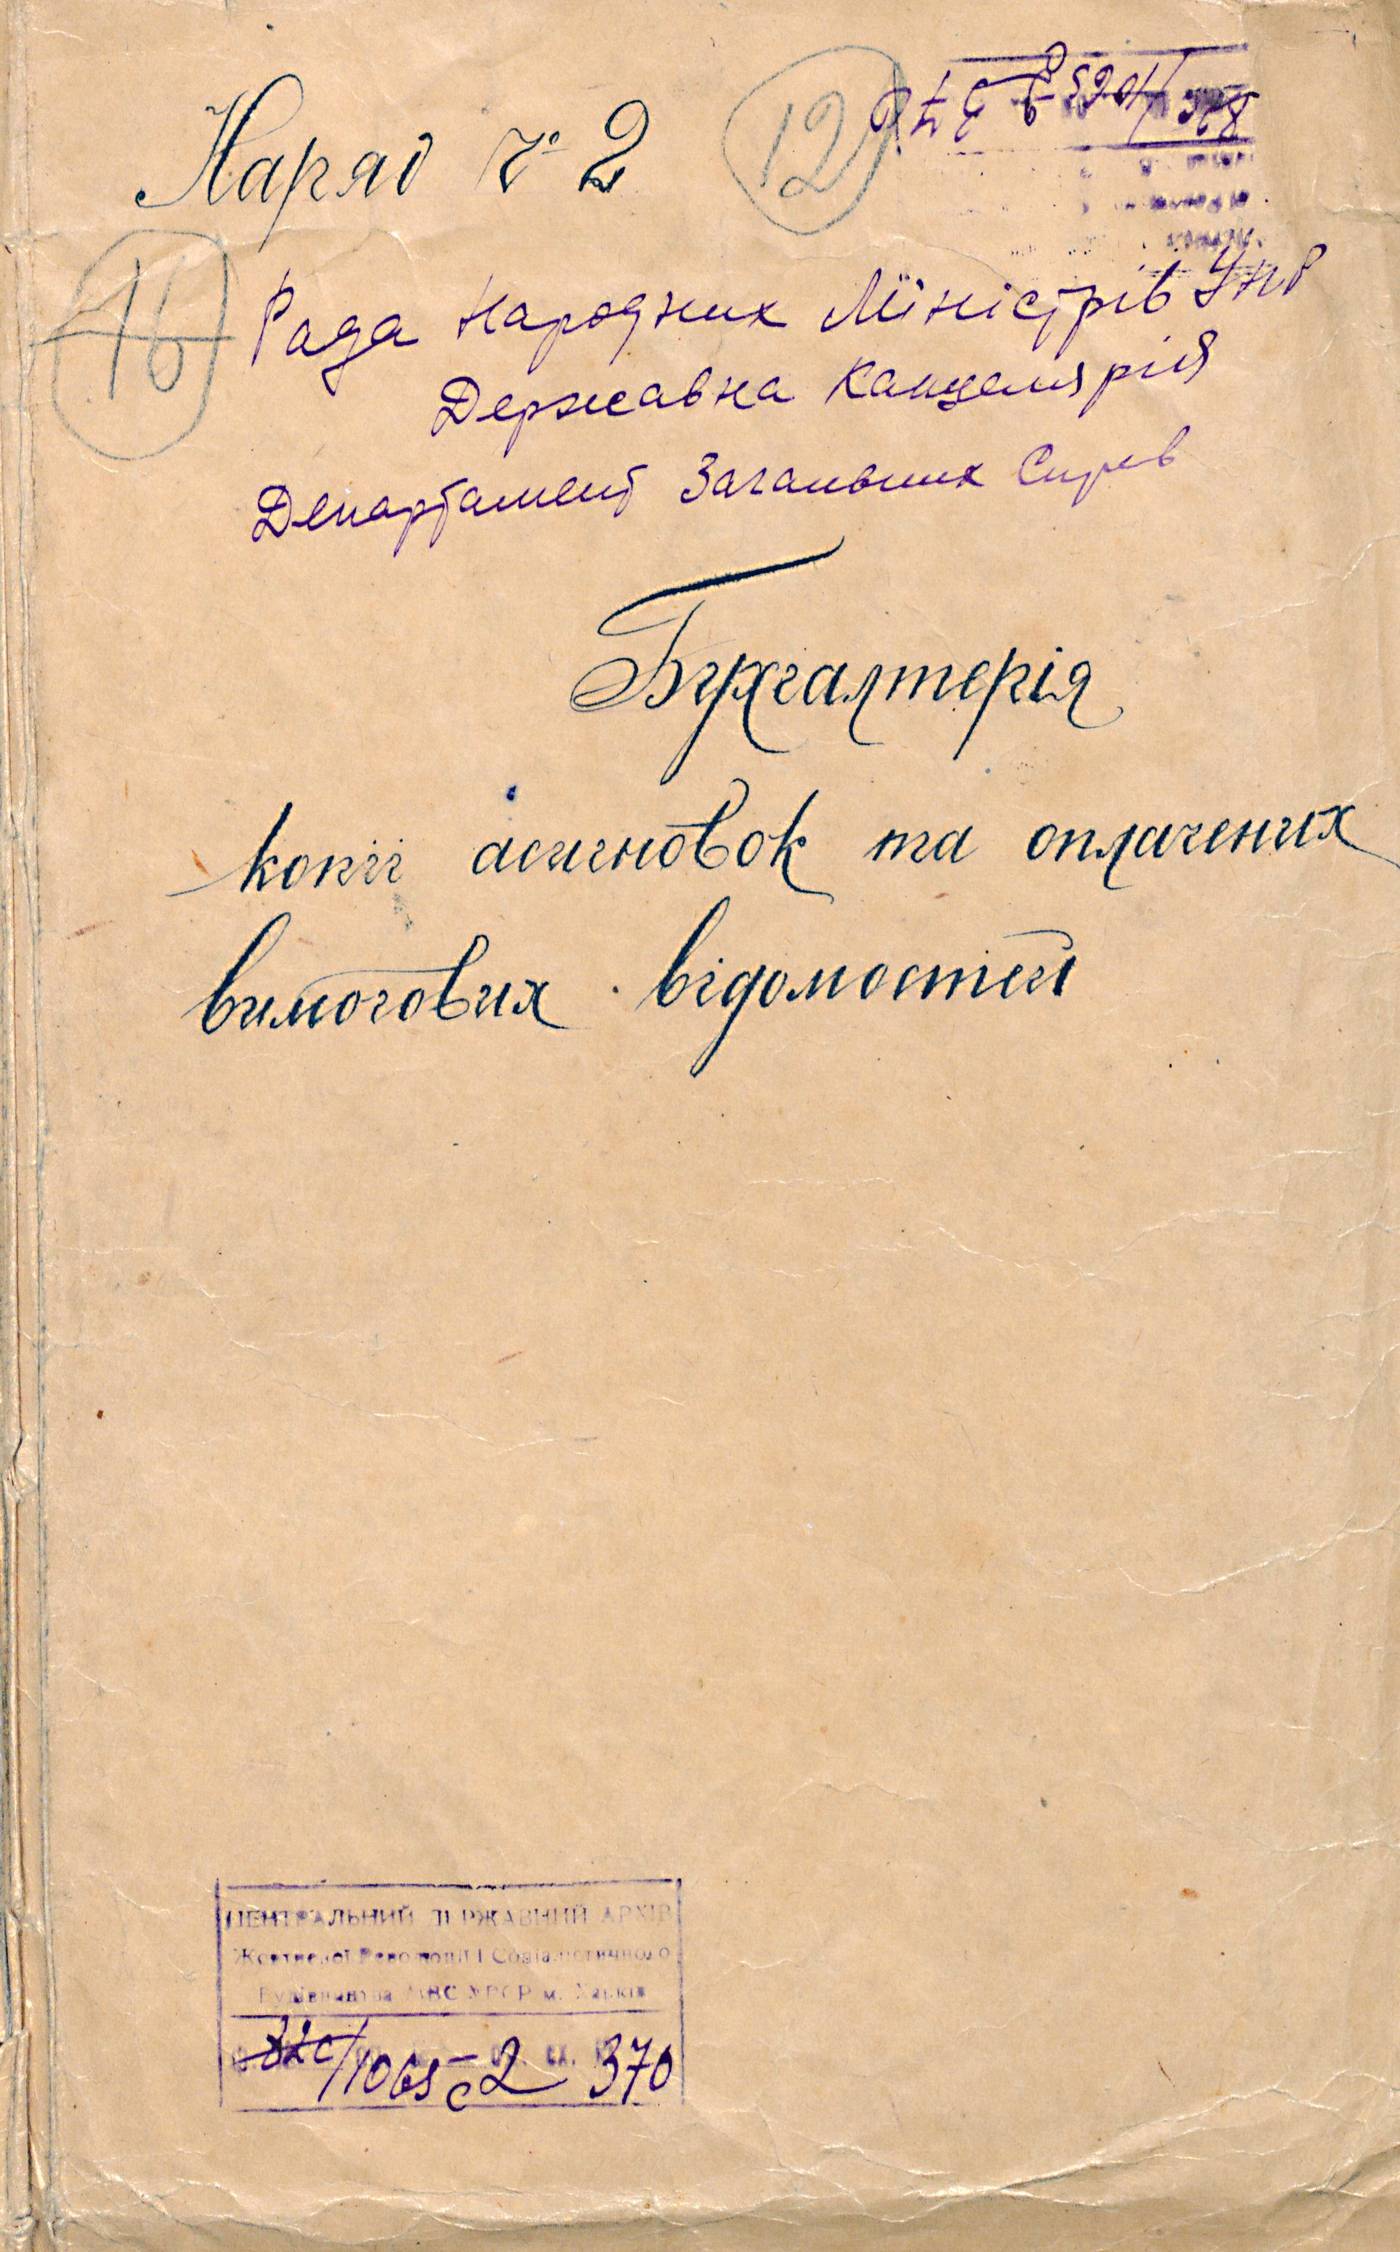 Наряд № 2
12
16
Рада Народних Міністрів УНР
Державна Канцелярія
Департамент Загальних Справ
Бухгалтерія
копії асигновок та оплачених
вимогових відомостей
ЦЕНТРАЛЬНИЙ ДЕРЖАВНИЙ АРХІВ
Жовтневої Революції і Соціалістичного
Будівництва МВС УРСР м. Харків
1065 с 2 370